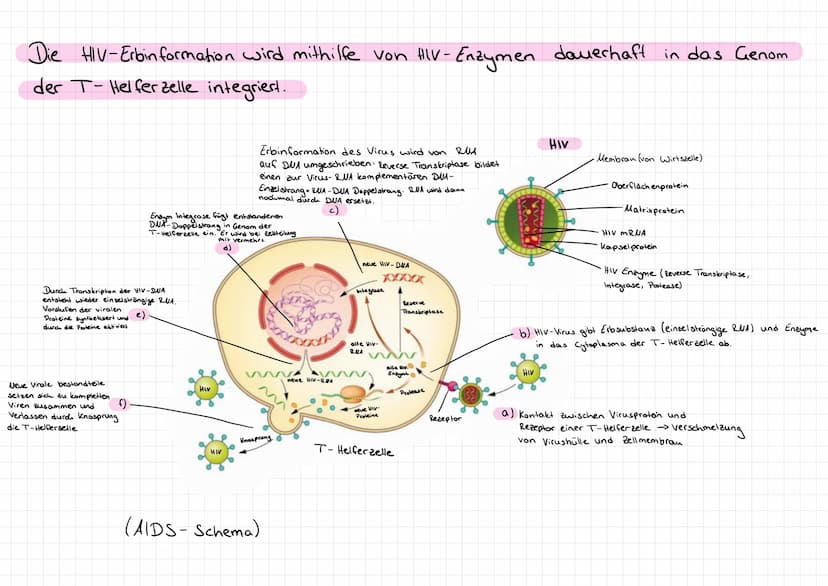 Die HIV-Erbinformation wird mithilfe von HIV-Enzymen dauerhaft in das Genom
der T-Helferzelle integriert.
HIV
Membran (von Wirtszelle)
Oberflächenprotein
Matrixprotein
HIV mRNA
Kapselprotein
HIV Enzyme (Reverse Transkriptase,
Integrase, Protease)
Erbinformation des Virus wird von RNA
auf DNA umgeschrieben. Reverse Transkriptase bildet
einen zur Virus-RNA komplementären DNA-
Einzelstrang = RNA-DNA Doppelstrang. RNA wird dann
nochmal durch DNA ersetzt.
c)
Enzym Integrase fügt entstandenen
DNA-Doppelstrang in Genom der
T-Helferzelle ein. Er wird bei Zellteilung
mit vermehrt.
d)
Durch Transkription der HIV-DNA
entsteht wieder einzelsträngige RNA.
Vorstufen der viralen
Proteine synthetisiert und
durch die Protease aktiviert
e)
Neue virale bestandteile
setzen sich zu kompletten
Viren zusammen und
verlassen durch Knospung
die T-Helferzelle
f)
neue HIV-DNA
Integrase
Reverse
Transkriptase
alte HIV-
RNA
alte HIV
Enzyme
neue HIV-RNA
Protease
neue HIV-
Proteine
Rezeptor
Knospung
HIV
HIV
HIV
T-Helferzelle
b) HIV-Virus gibt Erbsubstanz (einzelsträngige RNA) und Enzyme
in das Cytoplasma der T-Helferzelle ab.
a) Kontakt zwischen Virusprotein und
Rezeptor einer T-Helferzelle → Verschmelzung
von Virushülle und Zellmembran
(AIDS-Schema)